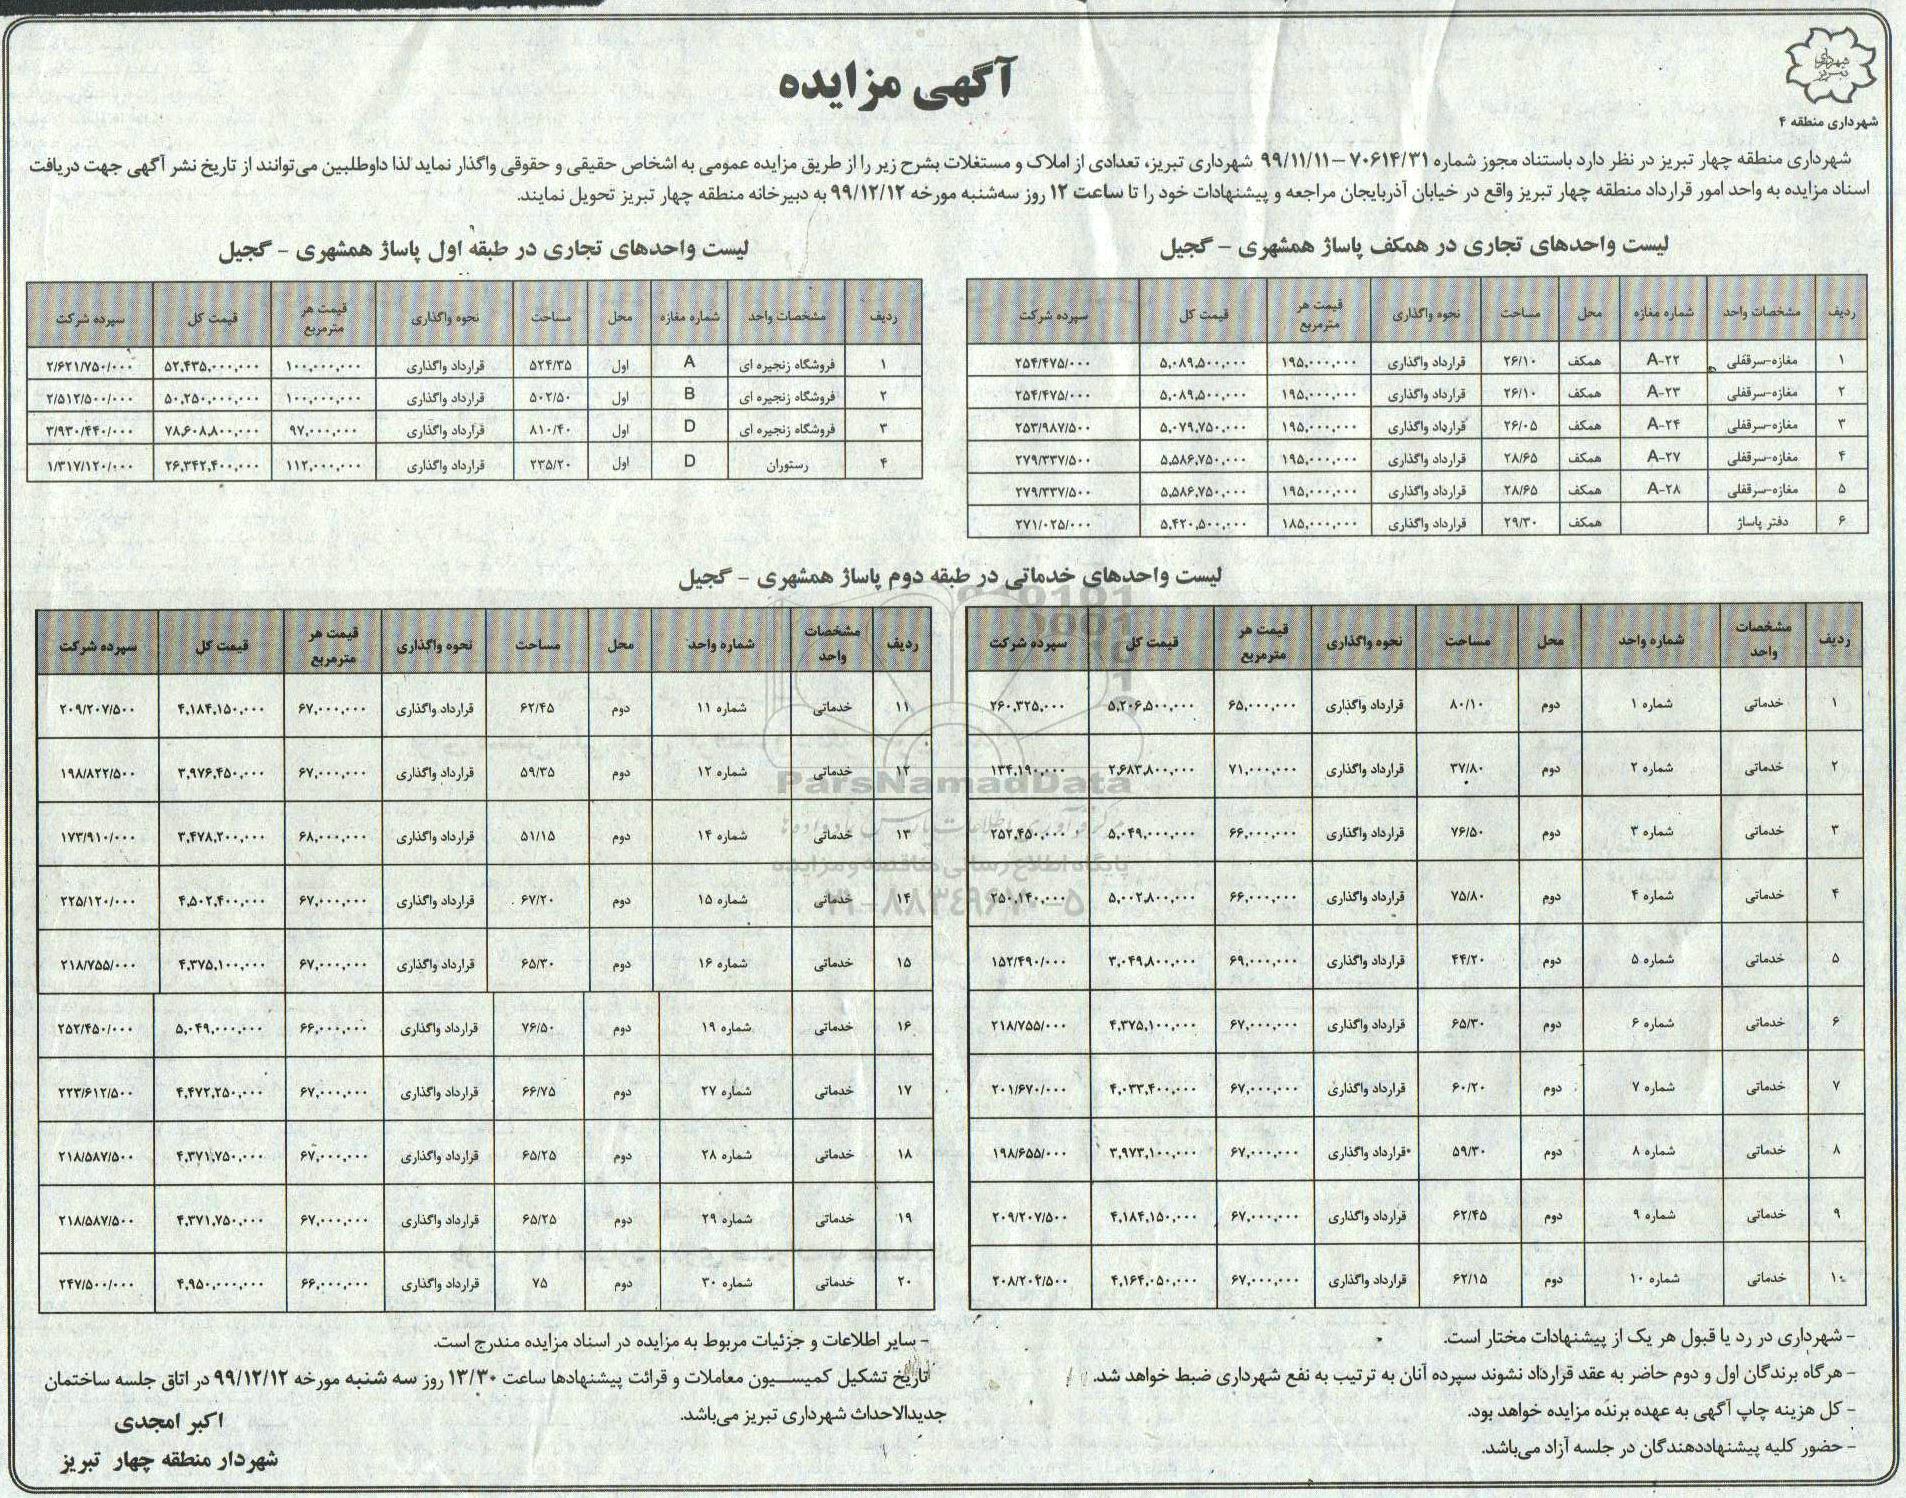 شهرداری تبریز
شهرداری منطقه ۴
آگهی مزایده
شهرداری منطقه چهار تبریز در نظر دارد باستناد مجوز شماره ۷۰۶۱۴/۳۱ – ۹۹/۱۱/۱۱ شهرداری تبریز، تعدادی از املاک و مستغلات بشرح زیر را از طریق مزایده عمومی به اشخاص حقیقی و حقوقی واگذار نماید لذا داوطلبین می‌توانند از تاریخ نشر آگهی جهت دریافت
اسناد مزایده به واحد امور قرارداد منطقه چهار تبریز واقع در خیابان آذربایجان مراجعه و پیشنهادات خود را تا ساعت ۱۲ روز سه‌شنبه مورخه ۹۹/۱۲/۱۲ به دبیرخانه منطقه چهار تبریز تحویل نمایند.
لیست واحدهای تجاری در همکف پاساژ همشهری – گجیل
ردیف مشخصات واحد شماره مغازه محل مساحت نحوه واگذاری قیمت هر مترمربع قیمت کل سپرده شرکت
۱ مغازه-سرقفلی A-۲۲ همکف ۲۶/۱۰ قرارداد واگذاری ۱۹۵,۰۰۰,۰۰۰ ۵,۰۸۹,۵۰۰,۰۰۰ ۲۵۴/۴۷۵/۰۰۰
۲ مغازه-سرقفلی A-۲۳ همکف ۲۶/۱۰ قرارداد واگذاری ۱۹۵,۰۰۰,۰۰۰ ۵,۰۸۹,۵۰۰,۰۰۰ ۲۵۴/۴۷۵/۰۰۰
۳ مغازه-سرقفلی A-۲۴ همکف ۲۶/۰۵ قرارداد واگذاری ۱۹۵,۰۰۰,۰۰۰ ۵,۰۷۹,۷۵۰,۰۰۰ ۲۵۳/۹۸۷/۵۰۰
۴ مغازه-سرقفلی A-۲۷ همکف ۲۸/۶۵ قرارداد واگذاری ۱۹۵,۰۰۰,۰۰۰ ۵,۵۸۶,۷۵۰,۰۰۰ ۲۷۹/۳۳۷/۵۰۰
۵ مغازه-سرقفلی A-۲۸ همکف ۲۸/۶۵ قرارداد واگذاری ۱۹۵,۰۰۰,۰۰۰ ۵,۵۸۶,۷۵۰,۰۰۰ ۲۷۹/۳۳۷/۵۰۰
۶ دفتر پاساژ همکف ۲۹/۳۰ قرارداد واگذاری ۱۸۵,۰۰۰,۰۰۰ ۵,۴۲۰,۵۰۰,۰۰۰ ۲۷۱/۰۲۵/۰۰۰
لیست واحدهای تجاری در طبقه اول پاساژ همشهری – گجیل
ردیف مشخصات واحد شماره مغازه محل مساحت نحوه واگذاری قیمت هر مترمربع قیمت کل سپرده شرکت
۱ فروشگاه زنجیره ای A اول ۵۲۴/۳۵ قرارداد واگذاری ۱۰۰,۰۰۰,۰۰۰ ۵۲,۴۳۵,۰۰۰,۰۰۰ ۲/۶۲۱/۷۵۰/۰۰۰
۲ فروشگاه زنجیره ای B اول ۵۰۲/۵۰ قرارداد واگذاری ۱۰۰,۰۰۰,۰۰۰ ۵۰,۲۵۰,۰۰۰,۰۰۰ ۲/۵۱۲/۵۰۰/۰۰۰
۳ فروشگاه زنجیره ای D اول ۸۱۰/۴۰ قرارداد واگذاری ۹۷,۰۰۰,۰۰۰ ۷۸,۶۰۸,۸۰۰,۰۰۰ ۳/۹۳۰/۴۴۰/۰۰۰
۴ رستوران D اول ۲۳۵/۲۰ قرارداد واگذاری ۱۱۲,۰۰۰,۰۰۰ ۲۶,۳۴۲,۴۰۰,۰۰۰ ۱/۳۱۷/۱۲۰/۰۰۰
لیست واحدهای خدماتی در طبقه دوم پاساژ همشهری – گجیل
ردیف مشخصات واحد شماره واحد محل مساحت نحوه واگذاری قیمت هر مترمربع قیمت کل سپرده شرکت
۱ خدماتی شماره ۱ دوم ۸۰/۱۰ قرارداد واگذاری ۶۵,۰۰۰,۰۰۰ ۵,۲۰۶,۵۰۰,۰۰۰ ۲۶۰,۳۲۵,۰۰۰
۲ خدماتی شماره ۲ دوم ۳۷/۸۰ قرارداد واگذاری ۷۱,۰۰۰,۰۰۰ ۲,۶۸۳,۸۰۰,۰۰۰ ۱۳۴,۱۹۰,۰۰۰
۳ خدماتی شماره ۳ دوم ۷۶/۵۰ قرارداد واگذاری ۶۶,۰۰۰,۰۰۰ ۵,۰۴۹,۰۰۰,۰۰۰ ۲۵۲,۴۵۰,۰۰۰
۴ خدماتی شماره ۴ دوم ۷۵/۸۰ قرارداد واگذاری ۶۶,۰۰۰,۰۰۰ ۵,۰۰۲,۸۰۰,۰۰۰ ۲۵۰,۱۴۰,۰۰۰
۵ خدماتی شماره ۵ دوم ۴۴/۲۰ قرارداد واگذاری ۶۹,۰۰۰,۰۰۰ ۳,۰۴۹,۸۰۰,۰۰۰ ۱۵۲/۴۹۰/۰۰۰
۶ خدماتی شماره ۶ دوم ۶۵/۳۰ قرارداد واگذاری ۶۷,۰۰۰,۰۰۰ ۴,۳۷۵,۱۰۰,۰۰۰ ۲۱۸/۷۵۵/۰۰۰
۷ خدماتی شماره ۷ دوم ۶۰/۲۰ قرارداد واگذاری ۶۷,۰۰۰,۰۰۰ ۴,۰۳۳,۴۰۰,۰۰۰ ۲۰۱/۶۷۰/۰۰۰
۸ خدماتی شماره ۸ دوم ۵۹/۳۰ قرارداد واگذاری ۶۷,۰۰۰,۰۰۰ ۳,۹۷۳,۱۰۰,۰۰۰ ۱۹۸/۶۵۵/۰۰۰
۹ خدماتی شماره ۹ دوم ۶۲/۴۵ قرارداد واگذاری ۶۷,۰۰۰,۰۰۰ ۴,۱۸۴,۱۵۰,۰۰۰ ۲۰۹/۲۰۷/۵۰۰
۱۰ خدماتی شماره ۱۰ دوم ۶۲/۱۵ قرارداد واگذاری ۶۷,۰۰۰,۰۰۰ ۴,۱۶۴,۰۵۰,۰۰۰ ۲۰۸/۲۰۲/۵۰۰
ردیف مشخصات واحد شماره واحد محل مساحت نحوه واگذاری قیمت هر مترمربع قیمت کل سپرده شرکت
۱۱ خدماتی شماره ۱۱ دوم ۶۲/۴۵ قرارداد واگذاری ۶۷,۰۰۰,۰۰۰ ۴,۱۸۴,۱۵۰,۰۰۰ ۲۰۹/۲۰۷/۵۰۰
۱۲ خدماتی شماره ۱۲ دوم ۵۹/۳۵ قرارداد واگذاری ۶۷,۰۰۰,۰۰۰ ۳,۹۷۶,۴۵۰,۰۰۰ ۱۹۸/۸۲۲/۵۰۰
۱۳ خدماتی شماره ۱۴ دوم ۵۱/۱۵ قرارداد واگذاری ۶۸,۰۰۰,۰۰۰ ۳,۴۷۸,۲۰۰,۰۰۰ ۱۷۳/۹۱۰/۰۰۰
۱۴ خدماتی شماره ۱۵ دوم ۶۷/۲۰ قرارداد واگذاری ۶۷,۰۰۰,۰۰۰ ۴,۵۰۲,۴۰۰,۰۰۰ ۲۲۵/۱۲۰/۰۰۰
۱۵ خدماتی شماره ۱۶ دوم ۶۵/۳۰ قرارداد واگذاری ۶۷,۰۰۰,۰۰۰ ۴,۳۷۵,۱۰۰,۰۰۰ ۲۱۸/۷۵۵/۰۰۰
۱۶ خدماتی شماره ۱۹ دوم ۷۶/۵۰ قرارداد واگذاری ۶۶,۰۰۰,۰۰۰ ۵,۰۴۹,۰۰۰,۰۰۰ ۲۵۲/۴۵۰/۰۰۰
۱۷ خدماتی شماره ۲۷ دوم ۶۶/۷۵ قرارداد واگذاری ۶۷,۰۰۰,۰۰۰ ۴,۴۷۲,۲۵۰,۰۰۰ ۲۲۳/۶۱۲/۵۰۰
۱۸ خدماتی شماره ۲۸ دوم ۶۵/۲۵ قرارداد واگذاری ۶۷,۰۰۰,۰۰۰ ۴,۳۷۱,۷۵۰,۰۰۰ ۲۱۸/۵۸۷/۵۰۰
۱۹ خدماتی شماره ۲۹ دوم ۶۵/۲۵ قرارداد واگذاری ۶۷,۰۰۰,۰۰۰ ۴,۳۷۱,۷۵۰,۰۰۰ ۲۱۸/۵۸۷/۵۰۰
۲۰ خدماتی شماره ۳۰ دوم ۷۵ قرارداد واگذاری ۶۶,۰۰۰,۰۰۰ ۴,۹۵۰,۰۰۰,۰۰۰ ۲۴۷/۵۰۰/۰۰۰
ParsNamadData
پایگاه اطلاع رسانی مناقصه و مزایده
– شهرداری در رد یا قبول هر یک از پیشنهادات مختار است.
– هرگاه برندگان اول و دوم حاضر به عقد قرارداد نشوند سپرده آنان به ترتیب به نفع شهرداری ضبط خواهد شد.
– کل هزینه چاپ آگهی به عهده برنده مزایده خواهد بود.
– حضور کلیه پیشنهاددهندگان در جلسه آزاد می‌باشد.
– سایر اطلاعات و جزئیات مربوط به مزایده در اسناد مزایده مندرج است.
تاریخ تشکیل کمیسیون معاملات و قرائت پیشنهادها ساعت ۱۳/۳۰ روز سه شنبه مورخه ۹۹/۱۲/۱۲ در اتاق جلسه ساختمان
جدیدالاحداث شهرداری تبریز می‌باشد.
اکبر امجدی
شهردار منطقه چهار تبریز